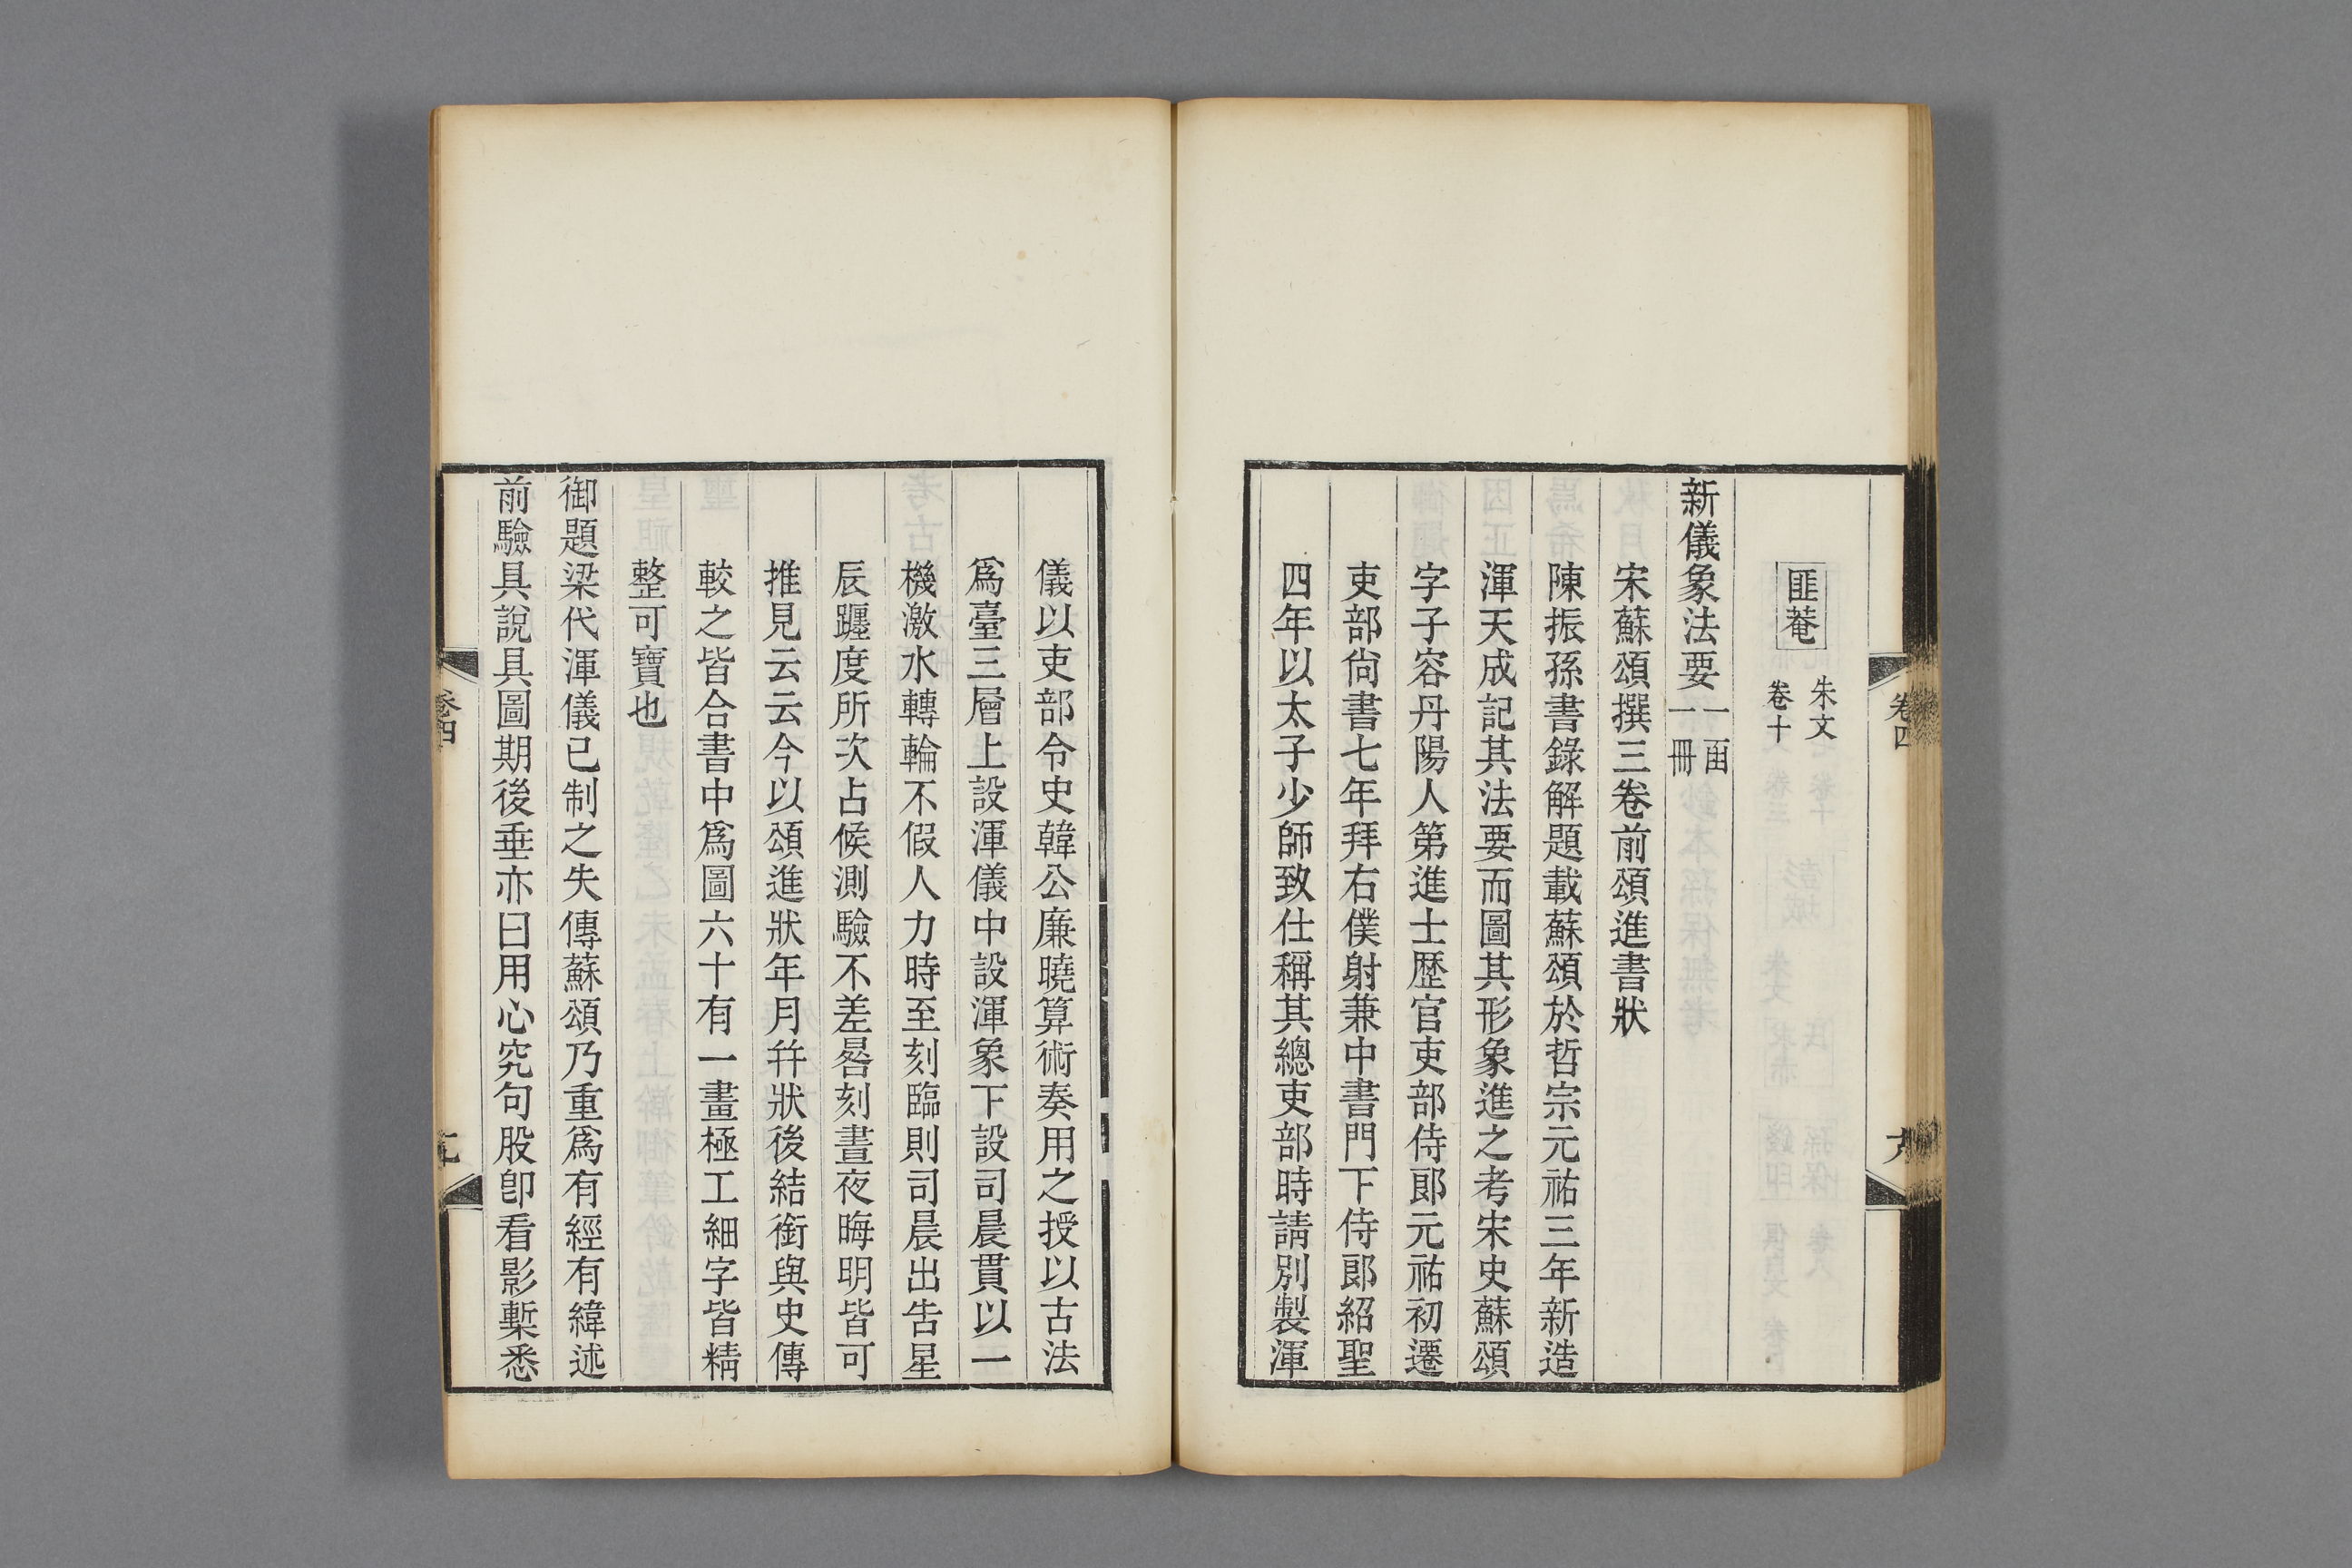 匪菴
朱文
卷十
新儀象法要一函
一冊
宋蘇頌撰三卷前頌進書狀
陳振孫書錄解題載蘇頌於哲宗元祐三年新造
渾天成記其法要而圖其形象進之考宋史蘇頌
字子容丹陽人第進士歷官吏部侍郎元祐初遷
吏部尚書七年拜右僕射兼中書門下侍郎紹聖
四年以太子少師致仕稱其總吏部時請別製渾
儀以吏部令史韓公廉曉算術奏用之授以古法
爲臺三層上設渾儀中設渾象下設司晨貫以一
機激水轉輪不假人力時至刻臨則司晨出告星
辰躔度所次占候測驗不差晷刻晝夜晦明皆可
推見云云今以頌進狀年月幷狀後結銜與史傳
較之皆合書中爲圖六十有一畫極工細字皆精
整可寶也
御題梁代渾儀已制之失傳蘇頌乃重爲有經有緯述
前驗具說具圖期後垂亦曰用心究句股卽看影槧悉
卷四
卷四